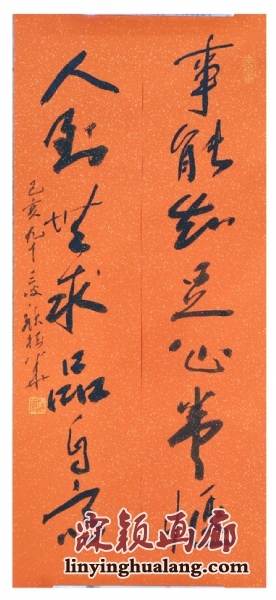 事能知足心常惬
人到无求品自高
己亥九十三歲
霖颖画廊
linyinghualang.com